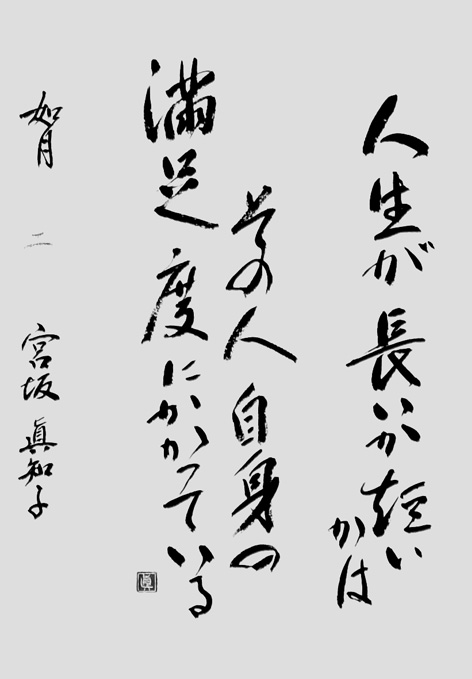 人生が長いか短いかは
その人自身の
満足度にかかっている
如月 二 宮坂眞知子
眞